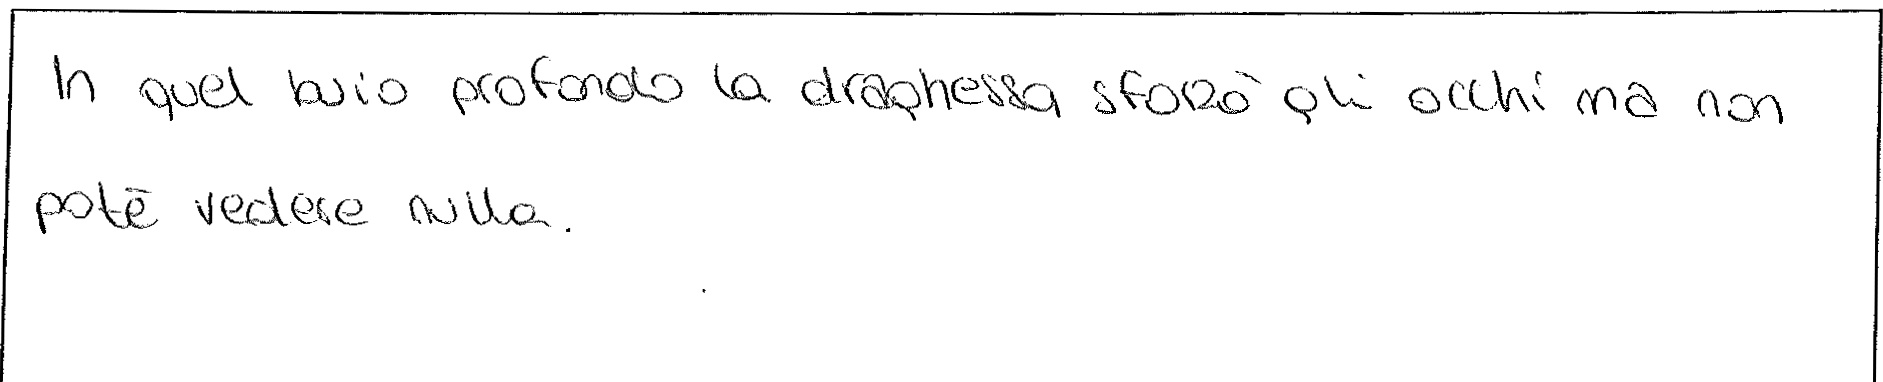 In quel buio profondo la draghessa sforzò gli occhi ma non
potè vedere nulla.